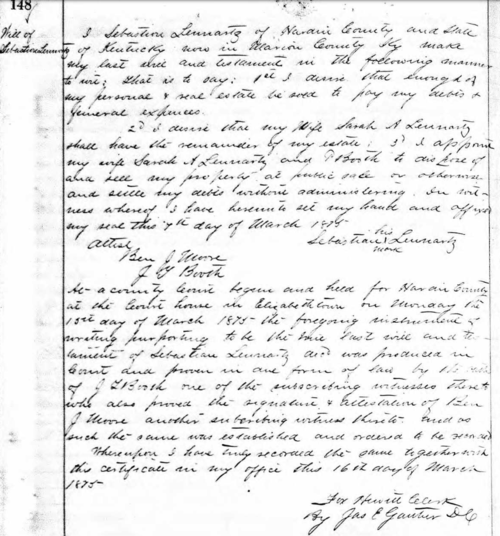 148
Will of
Sebastian Lennartz
I Sebastian Lennartz of Hardin County and State
of Kentucky now in Marion County Ky make
my last will and testament in the following manner
to wit: that is to say: 1st I desire that enough of
my personal & real estate be sold to pay my debts &
general expences.
2d I desire that my Wife Sarah A Lennartz
shall have the remainder of my estate: 3d I appoint
my wife Sarah A Lennartz and Booth to dispose of
and sell my property at public sale or otherwise
and settle my debts without administering. In wit-
ness whereof I have hereunto set my hand and affixed
my seal this 7th day of March 1875
Attest
Sebastian his mark Lennartz
Ben J Moore
J Booth
At a county Court begun and held for Hardin County
at the Court house in Elizabethtown on Monday the
15th day of March 1875 the foregoing instrument of
writing purporting to be the true last will and tes-
tament of Sebastian Lennartz decd was produced in
Court and proven in due form of law by the
of J Booth one of the subscribing witnesses thereto
who also proved the signature & attestation of Ben
J Moore another subscribing witness thereto. And as
such the same was established and ordered to be recorded
Whereupon I have truly recorded the same together with
this certificate in my office this 16th day of March
1875
For Hewitt Clerk
By Jas E Gunter D C